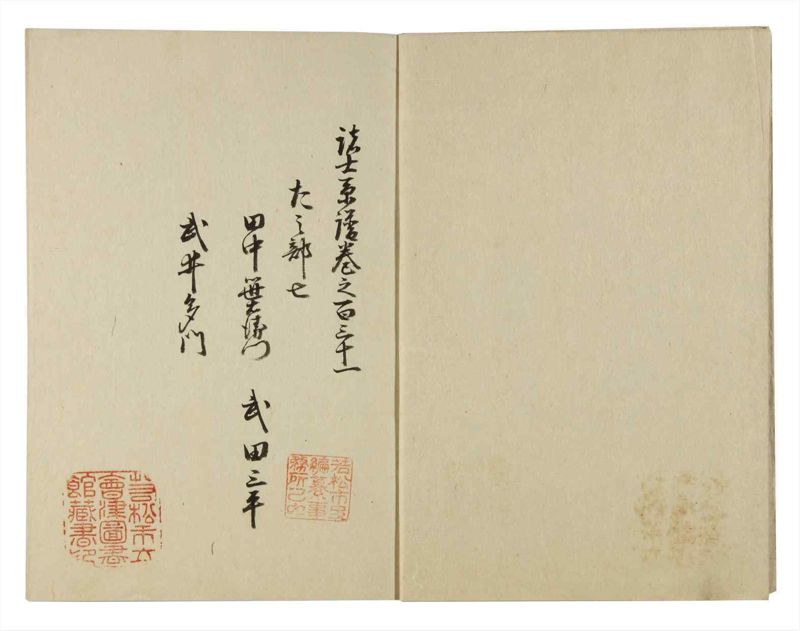 諸士系譜巻之百三十一
た之部七
田中 衛門 武田三平
武井多門
若松市史
編纂事
務所之印
若松市立
會津圖書
館藏書印